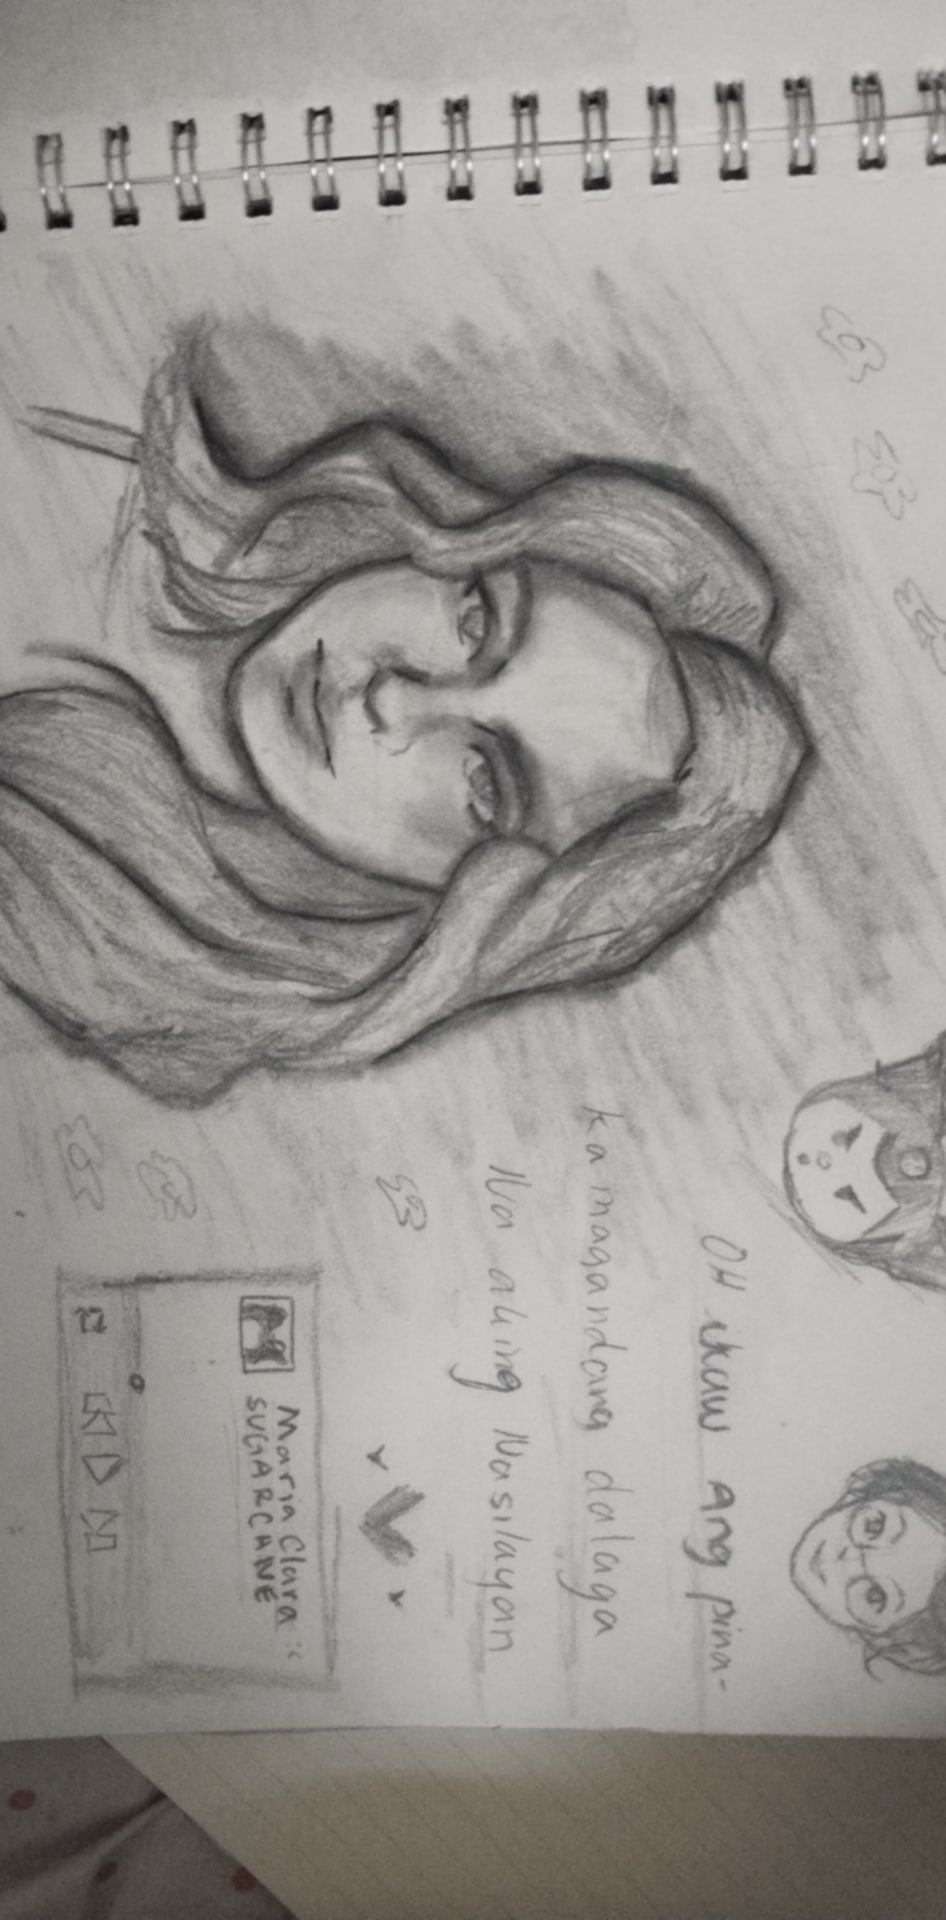 OH ikaw Ang pina-
kamagandang dalaga
Na aking Nasilayan
Maria Clara
SUGARCANE